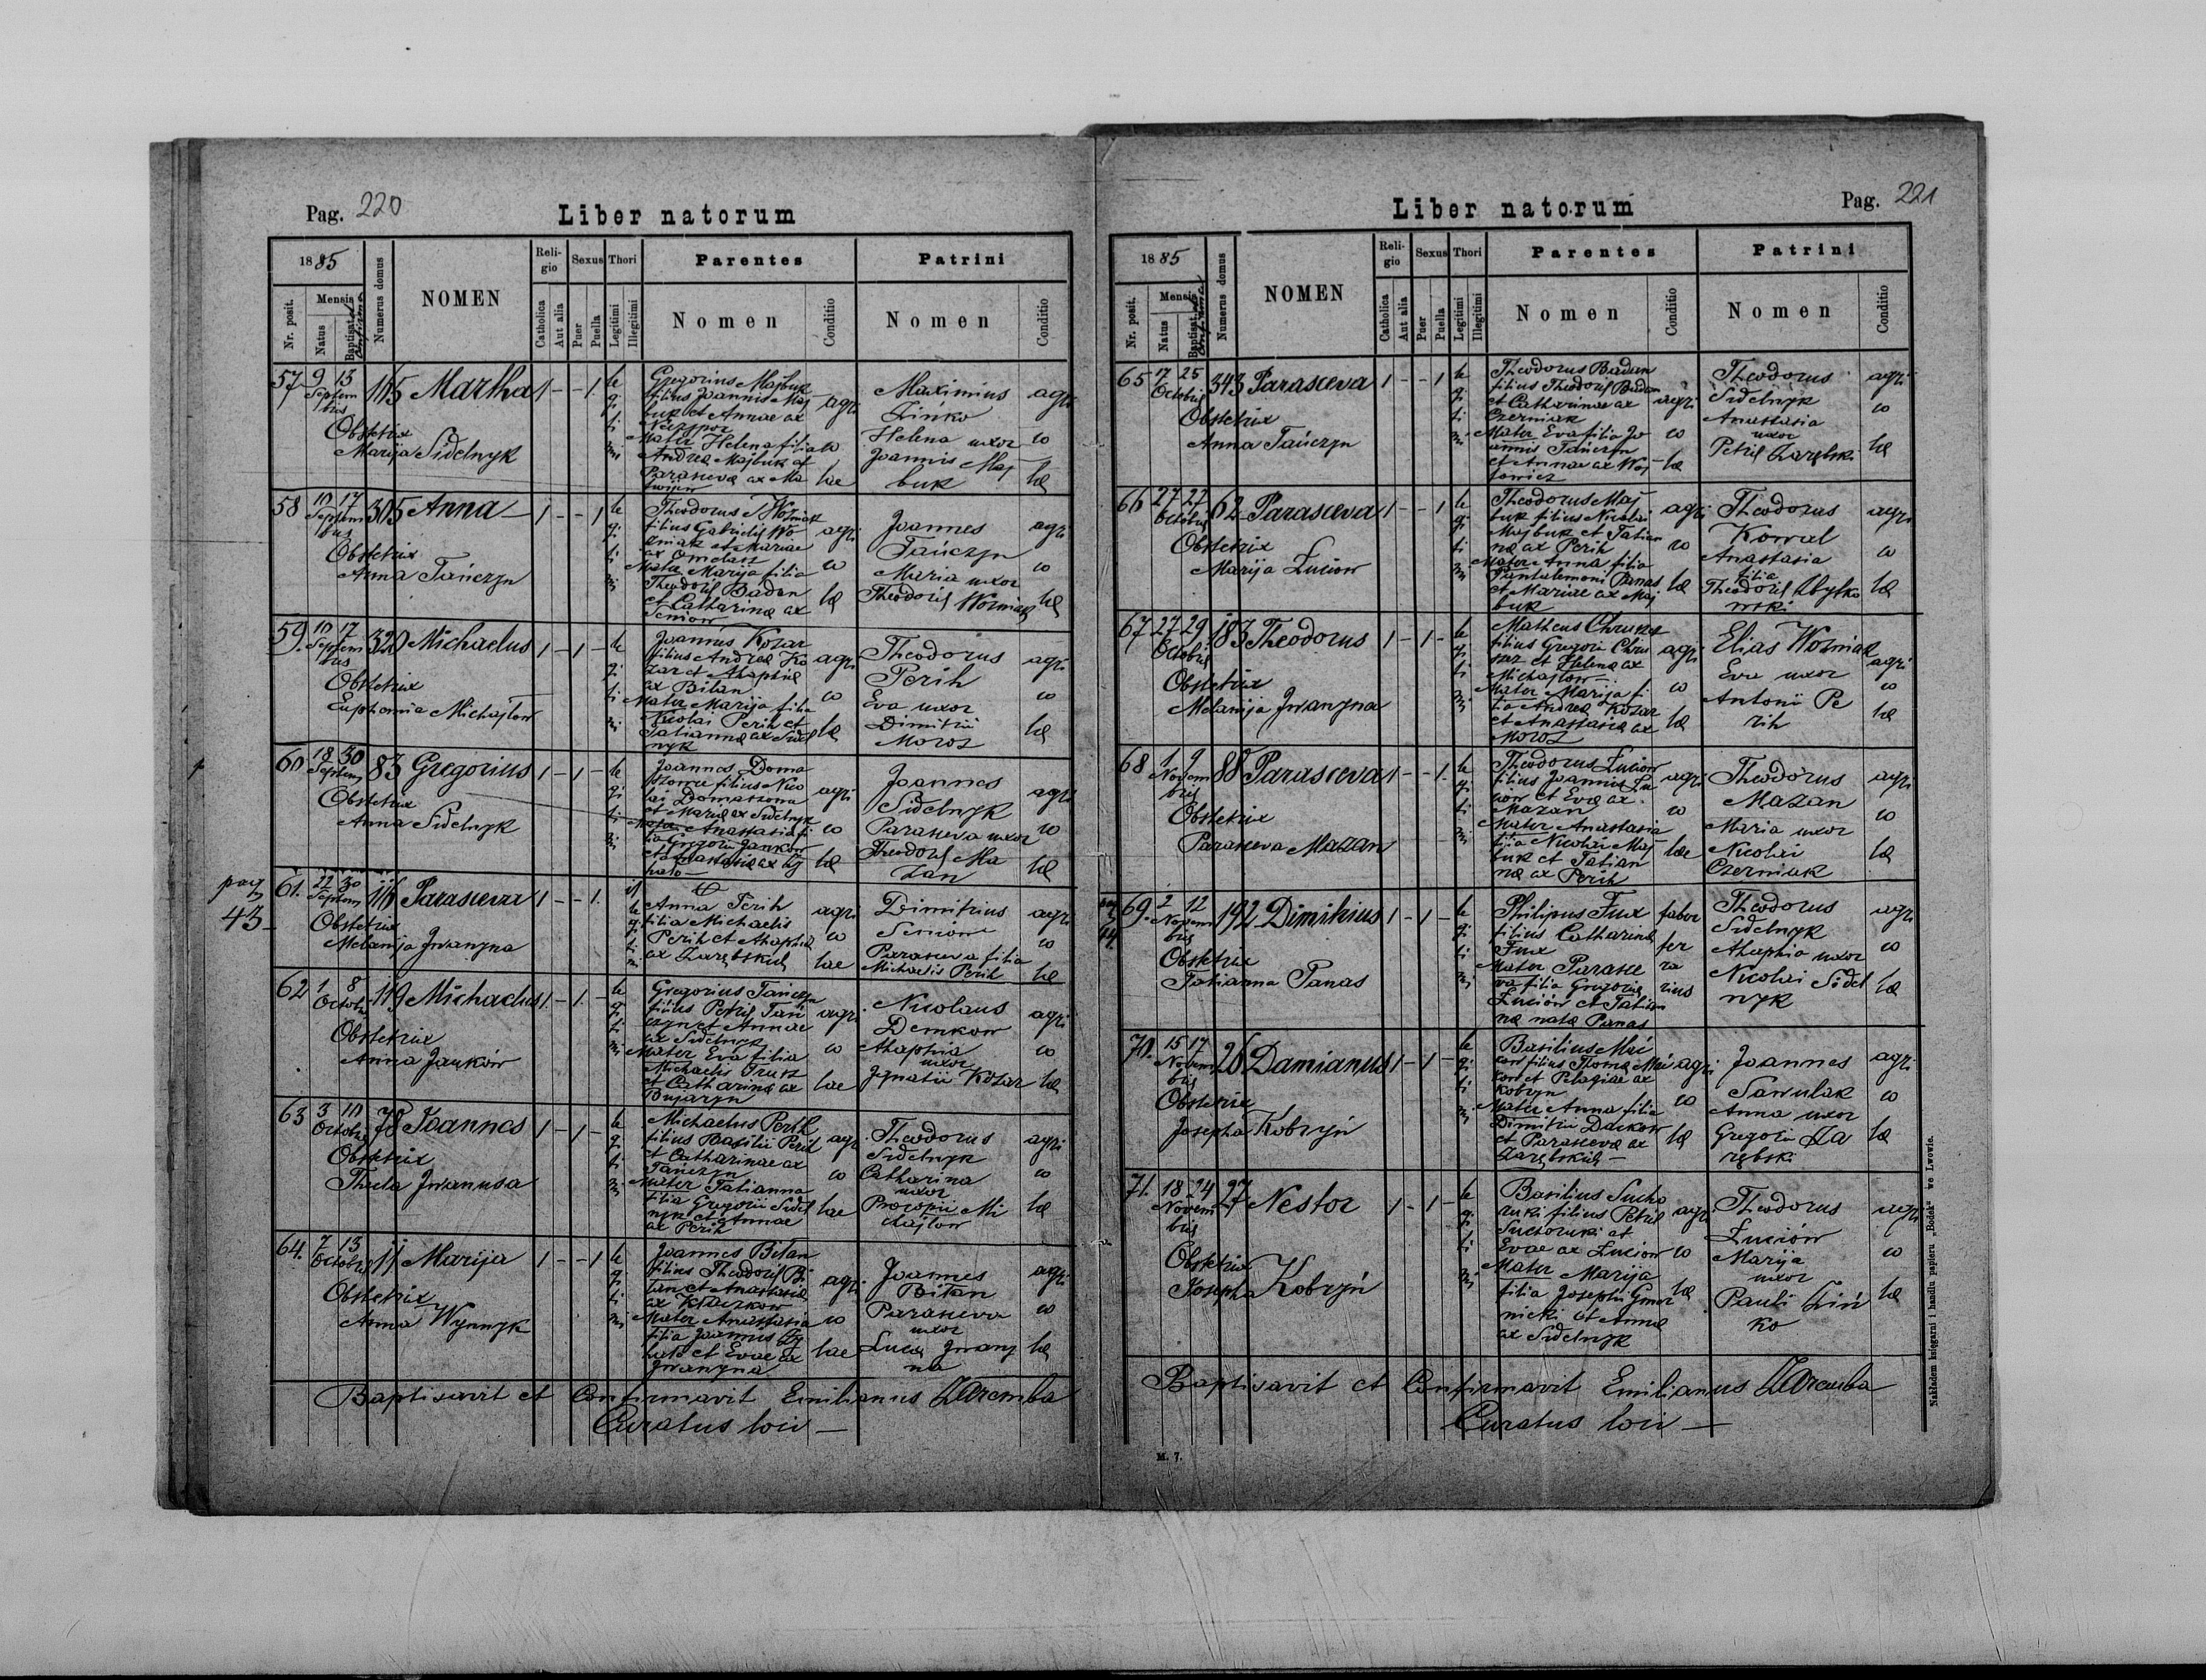 Pag. 220
Liber natorum
1885
Nr. posit.
Mensis
Natus
Baptisat. et confirma
Numerus domus
NOMEN
Religio
Catholica
Aut alia
Sexus
Puer
Puella
Thori
Legitimi
Illegitimi
Parentes
Nomen
Conditio
Patrini
Nomen
Conditio
57 9 13 Septembris 115 Martha 1 - - 1 legitimi
Obstetrix
Marija Sidelnyk
Gregorius Majbuk
filius Joannis Maj
buk et Annae ax
Mater Helena filia
Andreæ Majbuk et
Parasevæ ax
agricolae
Maximius
Zinko
Helena uxor
Joannis Maj
buk
agricolæ
58 10 17 Septembris 305 Anna 1 - - 1 legitimi
Obstetrix
Anna Tańczyn
Theodorus Wozniak
filius Gabrielis Wo
zniak et Mariae
ax Omelasz
Mater Marija filia
Theodori Badan
et Catharinæ ax
Seniow
agricolæ
Joannes
Tańczyn
Maria uxor
Theodori Wozniak
agricolæ
59. 10 17 Septembris 320 Michaelus 1 - 1 - legitimi
Obstetrix
Euphemia Michajlow
Joannes Kozar
filius Andreæ Ko
zar et Ahaphiæ
ax Bilan
Mater Marija filia
Nicolai Perih et
Tatiannæ ax Sidel
nyk
agricolæ
Theodorus
Perih
Eva uxor
Dimitrii
Moroz
agricolæ
60 18 30 Septem 83 Gregorius 1 - 1 - legitimi
Obstetrix
Anna Sidelnyk
Joannes Doma
filius Nico
lai
et Mariæ ax Sidelnyk
Mater Anastasia fi
lia Gregorii Jankow
et Anastasiæ ax
agricolæ
Joannes
Sidelnyk
Paraseva uxor
Theodori Ma
zan
agricolæ
pag
43
61. 22 30 Septem 116 Paraseva 1 - - 1. illegitimi
Obstetrix
Melanija Jwanyna
Anna Perih
filia Michaelis
Perih et Ahaphiæ
ax Zarębskich
agricolae
Dimitrius
Seniow
Paraseva filia
Michaelis Perih
agricolæ
62 1 8 Octob 119 Michaelus 1. - 1. - legitimi
Obstetrix
Anna Janków
Gregorius Tańczyn
filius Petri Tań
czyn et Annae
ax Sidelnyk
Mater Eva filia
Michaelis Prusz
et Catharinæ ax
Bujaryn
agricolae
Nicolaus
Demkow
Ahaphia
uxor
Jgnatii Kozar
agricolæ
63 3 10 Octob 78 Joannes 1 - 1 - legitimi
Obstetrix
Thecla Jwanusa
Michaelus Perih
filius Basilii Perih
et Catharinae ax
Tańczyn
Mater Tatianna
filia Gregorii Sidel
nyk et Annae
ax Perih
agricolae
Theodorus
Sidelnyk
Catharina
uxor
Procopii Mi
chajlow
agricolæ
64. 7 13 Octobris 11 Marija 1 - - 1 legitimi
Obstetrix
Anna Wynnyk
Joannes Bilan
filius Theodori Bi
lan et Anastasiæ
ax Klaczkow
Mater Anastasia
filia Joannis
et Evae ax
Jwanyna
agricolae
Joannes
Bilan
Paraseva
uxor
Lucæ Jwany
na
agricolæ
Baptisavit et Confirmavit Emilianus Zaremba
Curatus loci
Pag. 221
Liber natorum
1885
Nr. posit.
Mensis
Natus
Baptisat. et confirma
Numerus domus
NOMEN
Religio
Catholica
Aut alia
Sexus
Puer
Puella
Thori
Legitimi
Illegitimi
Parentes
Nomen
Conditio
Patrini
Nomen
Conditio
65 17 25 Octobris 343 Parasceva 1 - - 1 legitimi
Obstetrix
Anna Tańczyn
Theodorus Badan
filius Theodori Badan
et Catharinae ax
Czerniak
Mater Eva filia Jo
annis Tańczyn
et Annae ax Woj
towicz
agricolæ
Theodorus
Sidelnyk
Anastasia
uxor
Petri Zarębski
agricolæ
66 27 27 Octobris 62 Parasceva 1 - - 1 legitimi
Obstetrix
Marija Luciow
Theodorus Maj
buk filius Nicolai
Majbuk et Tatian
næ ax Perih
Mater Anna filia
Pantalemoni Panas
et Mariae ax Maj
buk
agricolæ
Theodorus
Kowal
Anastasia
filia
Theodori Zbytko
wski
agricolæ
67 27 29 Octobris 183 Theodorus 1 - 1 - legitimi
Obstetrix
Melanija Jwanyna
Matheus
filius Gregorii
et Helenæ ax
Michajlow
Mater Marija fi
lia Andreæ Kozar
et Anastasiæ ax
Moroz
agricolæ
Elias Wozniak
Eva uxor
Antonii Pe
rih
agricolæ
68 1 9 Novembris 88 Parasceva 1 - - 1. legitimi
Obstetrix
Paraseva Mazan
Theodorus Luciow
filius Joannis Lu
ciow et Evæ ax
Mazan
Mater Anastasia
filia Nicolai Maj
buk et Tatian
næ ax Perih
agricolae
Theodorus
Mazan
Maria uxor
Nicolai
Czerniak
agricolæ
69. 2 12 Novembris 192 Dimitrius 1 - 1 - legitimi
Obstetrix
Tatianna Panas
Philipus Fux
filius Catharinæ
Fux
Mater Parasce
va filia Gregorii
Luciów et Tatian
næ natæ Panas
faber
fer
ra
rius
Theodorus
Sidelnyk
Ahaphia uxor
Nicolai Sidel
nyk
agricolæ
70. 15 17 Novembris 26 Damianus 1 - 1 - legitimi
Obstetrix
Josepha Kobryń
Basilius Mać
kow filius Thomæ Mać
kow et Pelagiae ax
Kobryn
Mater Anna filia
Dimitrii Dackow
et Parascevæ ax
Zarębskich
agricolæ
Joannes
Sawulak
Anna uxor
Gregorii Za
rębski
agricolæ
71. 18 24 Novembris 27 Nestor 1 - 1 - legitimi
Obstetrix
Josepha Kobryń
Basilius Sucho
ruki filius Petri
Suchoruki et
Evae ax Luciow
Mater Marija
filia Josephi
nicki et Annæ
ax Sidelnyk
agricolæ
Theodorus
Luciów
Marija
uxor
Pauli Ziń
ko
agricolæ
Baptisavit et Confirmavit Emilianus Zaremba
Curatus loci
M. 7.
Nakładem księgarni i handlu papieru „Bodek” we Lwowie.